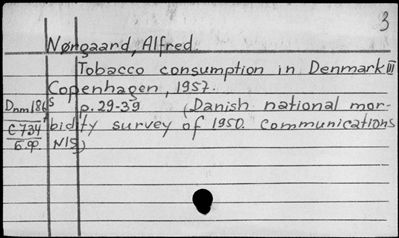 3
Nørgaard, Alfred.
Tobacco consumption in Denmark III
Copenhagen, 1957.
p. 29-39 (Danish national mor-
bidity survey of 1950. Communications
N15)
C734
б.ф.